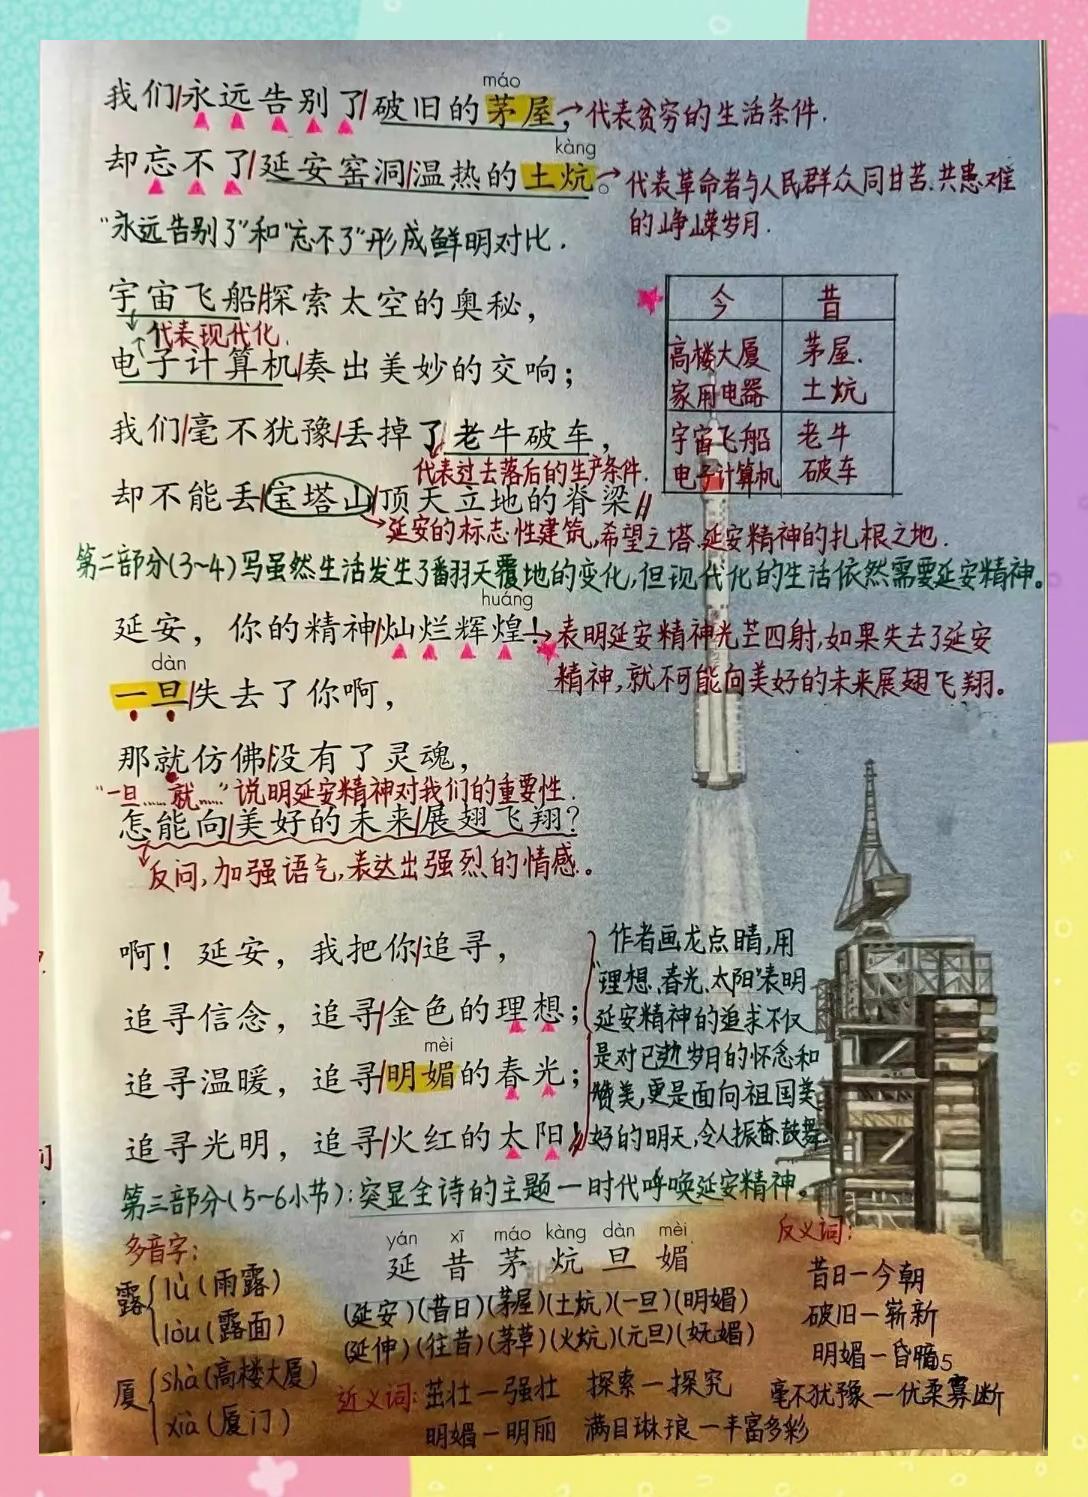 máo
我们/永远告别了/破旧的茅屋，→代表贫穷的生活条件.
kàng
却忘不了/延安窑洞/温热的土炕。→代表革命者与人民群众同甘苦、共患难
的峥嵘岁月.
"永远告别了"和"忘不了"形成鲜明对比.
宇宙飞船/探索太空的奥秘，
代表现代化.
电子计算机/奏出美妙的交响；
今 昔
高楼大厦 茅屋.
家用电器 土炕
宇宙飞船 老牛
电子计算机 破车
我们/毫不犹豫/丢掉了老牛破车，
代表过去落后的生产条件.
却不能丢/宝塔山/顶天立地的脊梁//
→延安的标志性建筑,希望之塔.延安精神的扎根之地.
第二部分(3~4)写虽然生活发生了翻天覆地的变化,但现代化的生活依然需要延安精神。
huáng
延安，你的精神/灿烂辉煌！→表明延安精神光芒四射,如果失去了延安
精神,就不可能向美好的未来展翅飞翔。
dàn
一旦/失去了你啊，
那就仿佛/没有了灵魂，
"一旦……就……"说明延安精神对我们的重要性.
怎能向/美好的未来/展翅飞翔？
反问,加强语气,表达出强烈的情感。
啊！延安，我把你/追寻，
追寻信念，追寻/金色的理想；
mèi
追寻温暖，追寻/明媚的春光；
追寻光明，追寻/火红的太阳！//
作者画龙点睛,用
"理想、春光、太阳"表明
延安精神的追求不仅
是对已逝岁月的怀念和
赞美,更是面向祖国美
好的明天,令人振奋鼓舞
第三部分(5~6小节):突显全诗的主题一时代呼唤延安精神。
多音字:
露 lù(雨露)
lòu(露面)
厦 shà(高楼大厦)
xià(厦门)
yán xī máo kàng dàn mèi
延 昔 茅 炕 旦 媚
(延安)(昔日)(茅屋)(土炕)(一旦)(明媚)
(延伸)(往昔)(茅草)(火炕)(元旦)(妩媚)
近义词:茁壮一强壮 探索一探究
明媚一明丽 满目琳琅一丰富多彩
反义词:
昔日一今朝
破旧一崭新
明媚一昏暗
毫不犹豫一优柔寡断